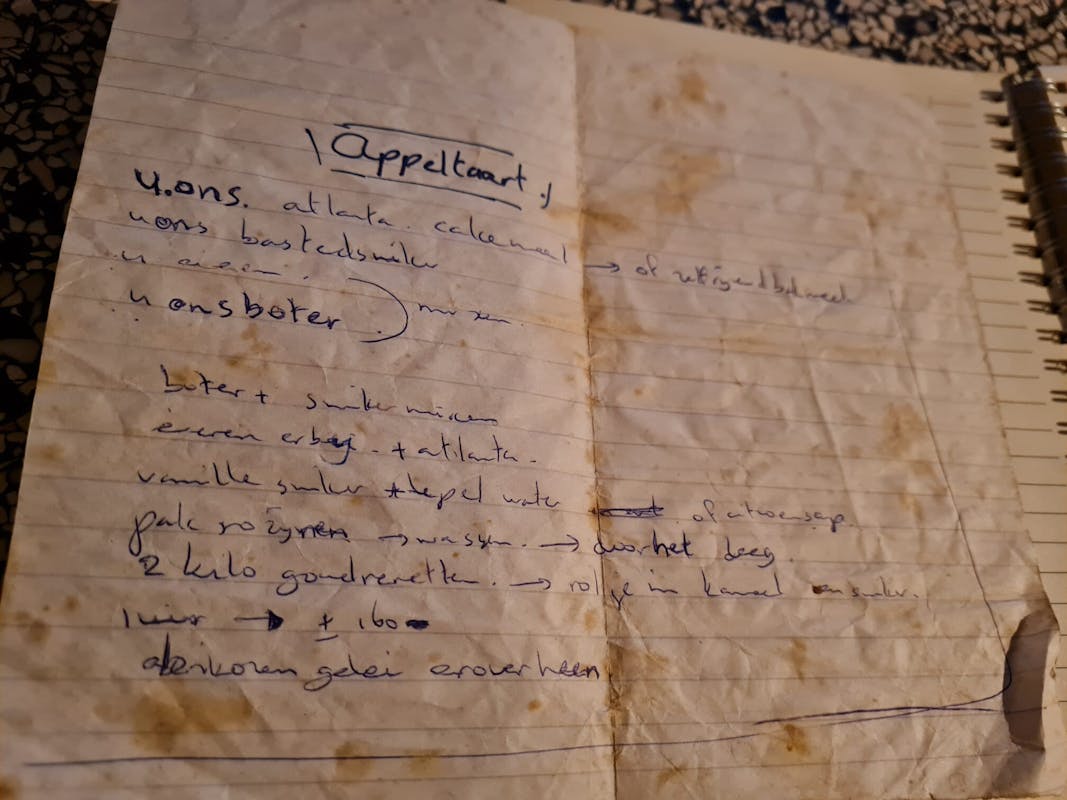 Appeltaart.
4.ons. atlanta. cakemeel
4ons basterdsuiker → of zelfrijzend bakmeel
4 eieren.
4 onsboter. mixen.
boter + suiker mixen
eieren erbij. + atlanta.
vanille suiker + lepel water of citroensap.
pak rozijnen → wassen. → doorhet deeg.
2 kilo goudrenetten. → rol je in kaneel en suiker.
1 uur → ± 160
abrikozen gelei eroverheen